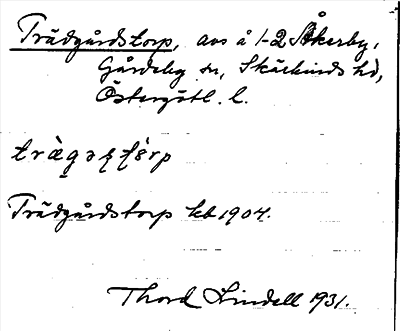 Trädgårdstorp, avs å 1-2 Åkerby,
Gårdeby sn, Skärkinds hd,
Östergötl. l.
Trädgårdstorp kb 1904.
Thord Lindell 1931.